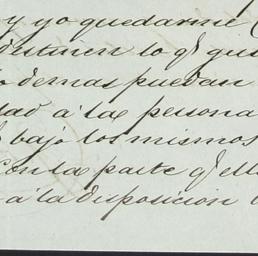 y yo quedarme
lo q̃ gus
demas puedan
dad á las persona
bajo los mismos
con la parte q̃ ell
á la disposicion